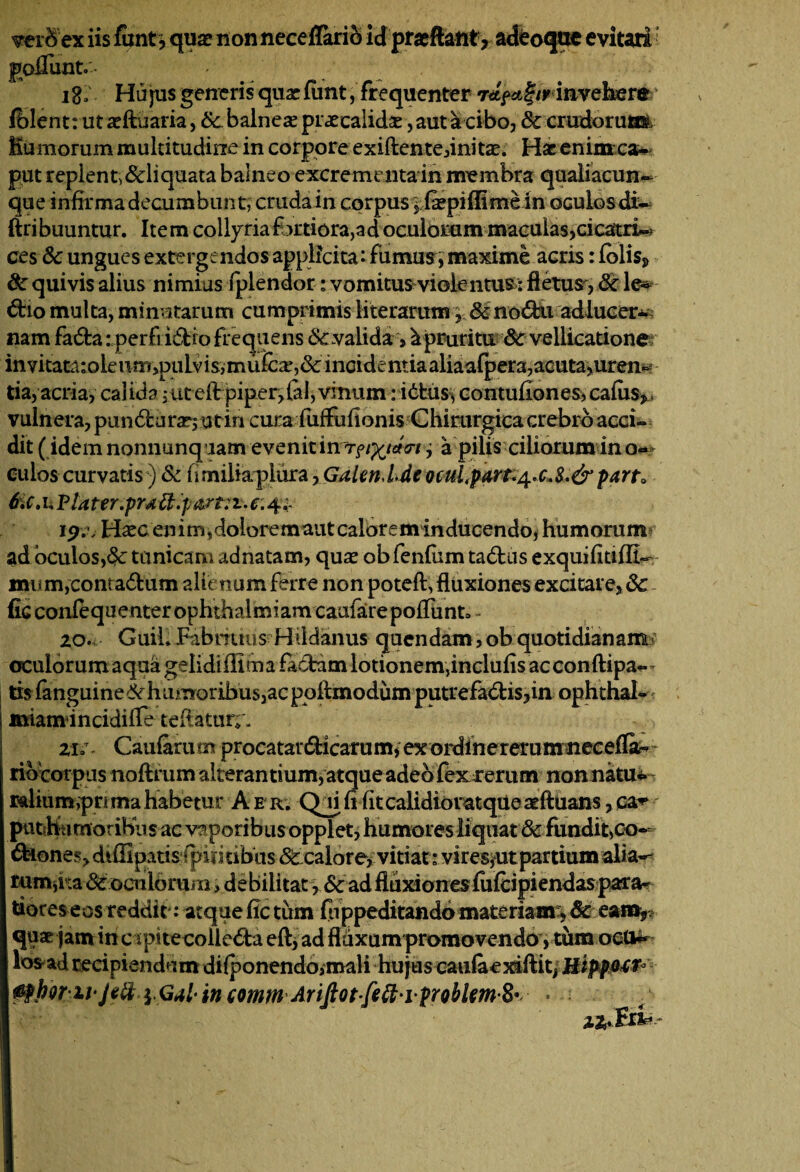 verò ex iis ſunt, quæ non neceſſariò id præſtant, adeoque evitari
poſſunt.
18. Hujus generis quæ ſunt, frequenter τάραξιν invehere
ſolent: ut æſtuaria, & balneæ præcalidæ, aut à cibo, & crudorum
humorum multitudine in corpore exiſtente, initæ. Hæ enim ca-
put replent, & liquata balneo excrementa in membra qualiacun-
que infirma decumbunt, cruda in corpus, ſæpiſſimè in oculos di-
ſtribuuntur. Item collyria fortiora, ad oculorum maculas, cicatri-
ces & ungues extergendos applicita: fumus, maxime acris: ſolis,
& quivis alius nimius ſplendor: vomitus violentus: fletus, & le-
ctio multa, minutarum cumprimis literarum, & noctu ad lucer-
nam facta: perfrictio frequens & valida, à pruritu & vellicatione
invitata: oleum, pulvis, muſcæ, & incidentia alia aſpera, acuta, uren-
tia, acria, calida; ut eſt piper, ſal, vinum: ictus, contuſiones, caſus,
vulnera, puncturæ; ut in cura ſuffuſionis Chirurgica crebrò acci-
dit (idem nonnunquam evenit in τριχιάσι, à pilis ciliorum in o-
culos curvatis) & ſimilia plura, Galen. l. de ocul. part. 4. c. 8. & part.
6. c. 1. Plater. pract. part. 2. c. 4.
19. Hæc enim, dolorem aut calorem inducendo, humorum
ad oculos, & tunicam adnatam, quæ ob ſenſum tactus exquiſitiſſi-
mum, contactum alienum ferre non poteſt, fluxiones excitare, &
ſic conſequenter ophthalmiam cauſare poſſunt.
20. Guil. Fabritius Hildanus quendam, ob quotidianam
oculorum aqua gelidiſſima factam lotionem, incluſis ac conſtipa-
tis ſanguine & humoribus, ac poſtmodùm putrefactis, in ophthal-
miam incidiſſe teſtatur.
21. Cauſarum procatarcticarum, ex ordine rerum neceſſa-
riò corpus noſtrum alterantium, atque adeò ſex rerum non natu-
ralium, prima habetur AER. Qui ſi ſit calidior atque æſtuans, ca-
put humoribus ac vaporibus opplet, humores liquat & fundit, co-
ctiones, diſſipatis ſpiritibus & calore, vitiat: vires, ut partium alia-
rum, ita & oculorum, debilitat, & ad fluxiones ſuſcipiendas para-
tiores eos reddit: atque ſic tùm ſuppeditando materiam, & eam,
quæ jam in capite collecta eſt, ad fluxum promovendo, tùm ocu-
los ad recipiendum diſponendo, mali hujus cauſa exiſtit, Hippocr.
aphor. 11. ſect. 3. Gal. in comm. Ariſtot. ſect. 1. problem. 8.
22. Fri-